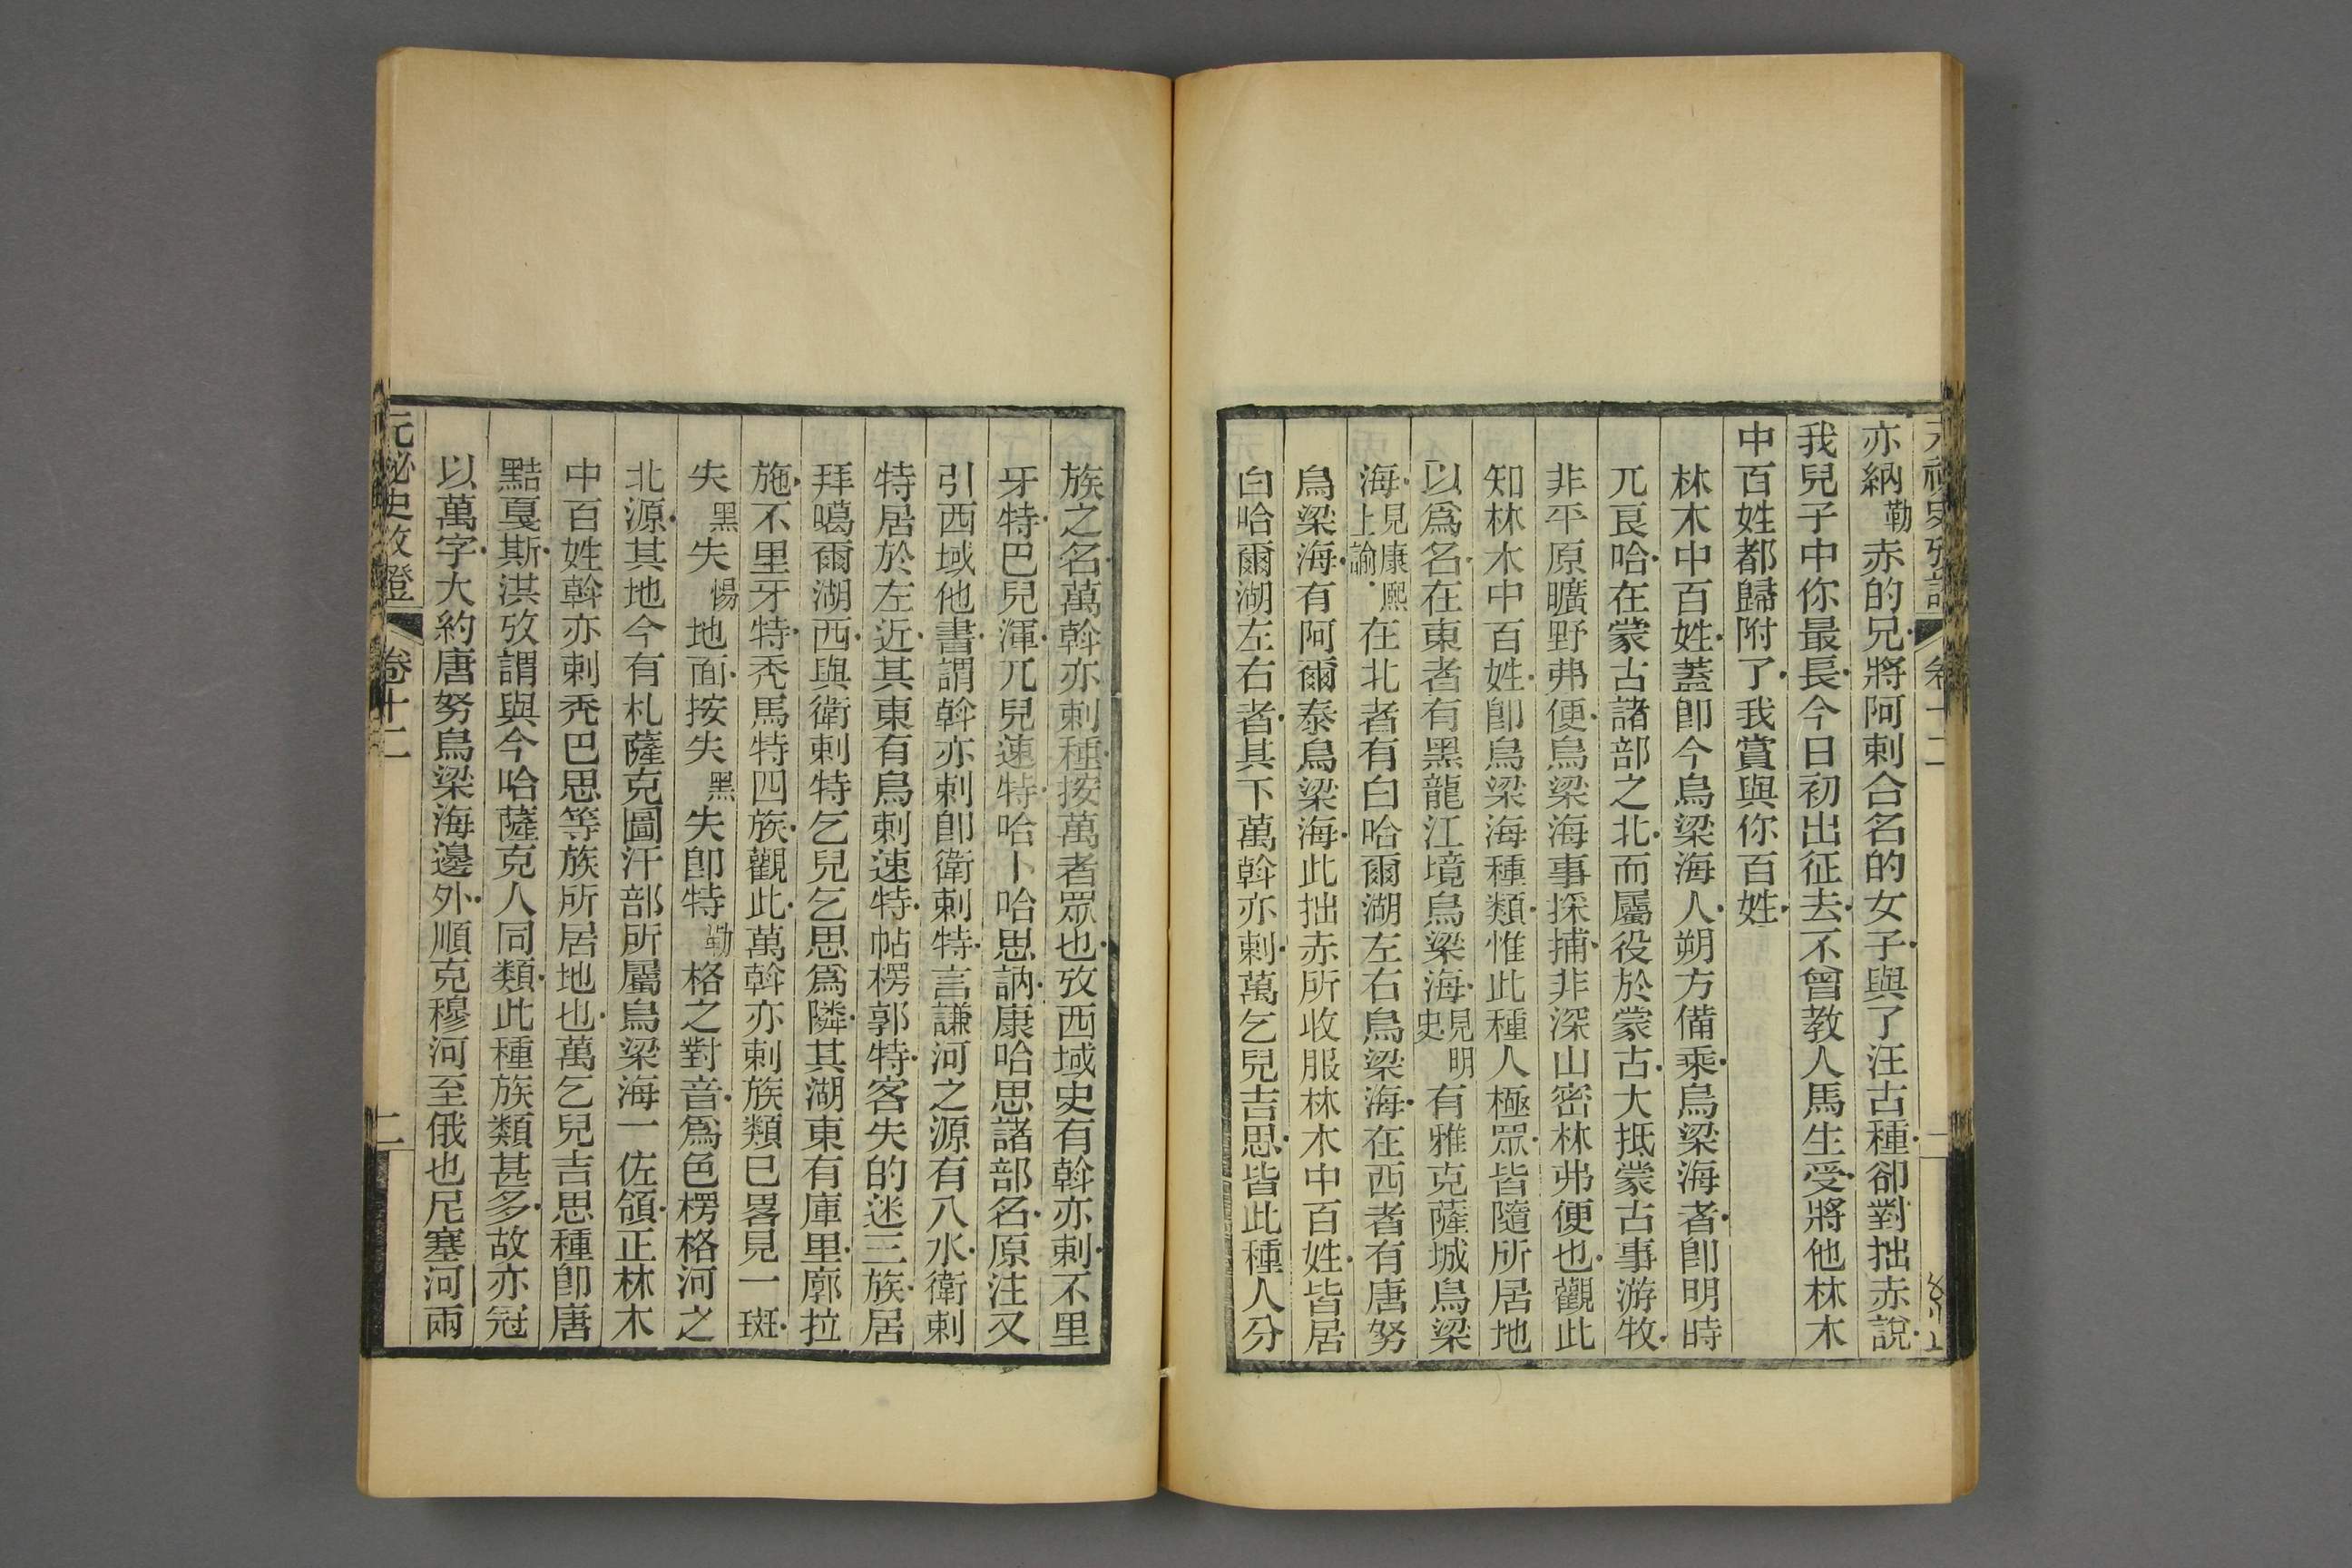 亦納勒赤的兄將阿剌合名的女子與了汪古種卻對拙赤說
我兒子中你最長今日初出征去不曾教人馬生受將他林木
中百姓都歸附了我賞與你百姓
林木中百姓蓋卽今烏梁海人朔方備乘烏梁海者卽明時
兀良哈在蒙古諸部之北而屬役於蒙古大抵蒙古事游牧
非平原曠野弗便烏梁海事採捕非深山密林弗便也觀此
知林木中百姓卽烏梁海種類惟此種人極眾皆隨所居地
以爲名在東者有黑龍江境烏梁海見明史有雅克薩城烏梁
海見康熙上諭在北者有白哈爾湖左右烏梁海在西者有唐努
烏梁海有阿爾泰烏梁海此拙赤所收服林木中百姓皆居
白哈爾湖左右者其下萬斡亦剌萬乞兒吉思皆此種人分
族之名萬斡亦剌種按萬者眾也攷西域史有斡亦剌不里
牙特巴兒渾兀兒速特哈卜哈思訥康哈思諸部名原注又
引西域他書謂斡亦剌卽衛剌特言謙河之源有八水衛剌
特居於左近其東有烏剌速特帖楞郭特客失的迷三族居
拜噶爾湖西與衛剌特乞兒乞思爲隣其湖東有庫里廓拉
施不里牙特禿馬特四族觀此萬斡亦剌族類已畧見一斑
失黑失惕地面按失黑失卽特勒格之對音爲色楞格河之
北源其地今有札薩克圖汗部所屬烏梁海一佐領正林木
中百姓斡亦剌禿巴思等族所居地也萬乞兒吉思種卽唐
黠戛斯淇攷謂與今哈薩克人同類此種族類甚多故亦冠
以萬字大約唐努烏梁海邊外順克穆河至俄也尼塞河兩
元秘史攷證 卷十二 二